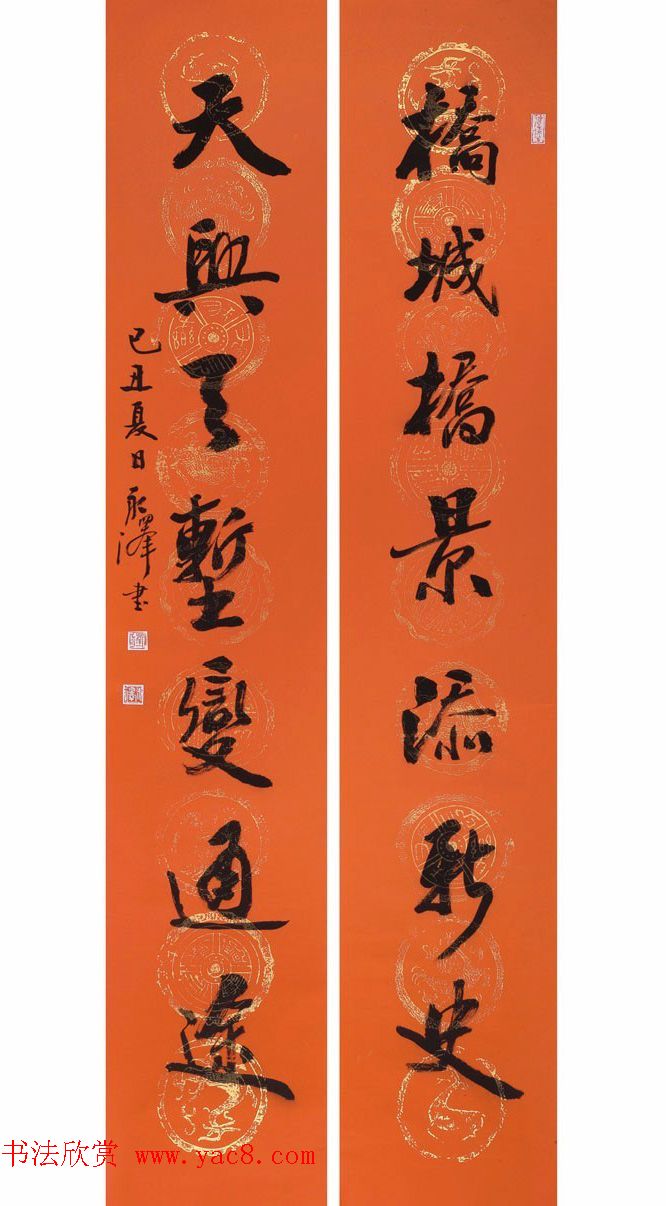 橋城橋景添新史
天興天塹變通途
己丑夏日永澤書
书法欣赏 www.yac8.com